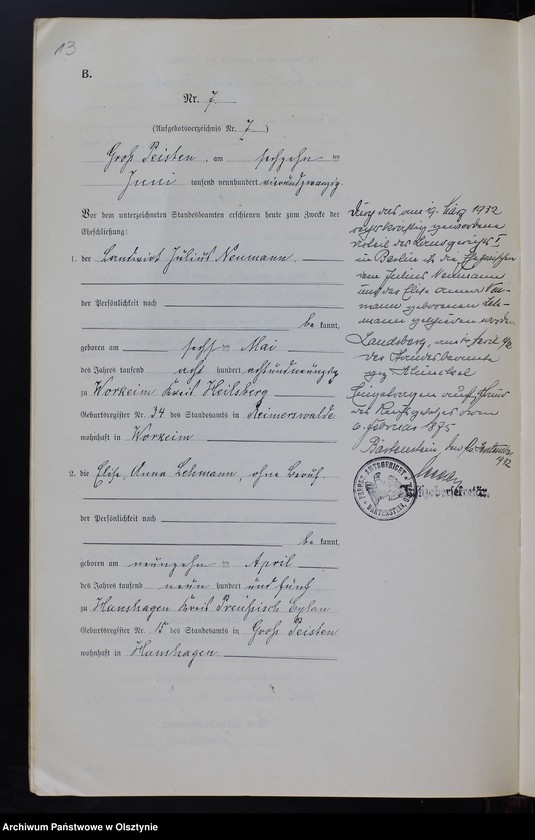 13
B.
Nr. 7
(Aufgebotsverzeichnis Nr. 7)
Groß Peisten, am sechzehn ten
Juni tausend neunhundert vierundzwanzig.
Vor dem unterzeichneten Standesbeamten erschienen heute zum Zwecke der
Eheschließung:
1. der Landwirt Julius Neumann,
der Persönlichkeit nach
be kannt,
geboren am sechs ten Mai
des Jahres tausend acht hundert achtundneunzig
zu Workeim Kreis Heilsberg
Geburtsregister Nr. 34 des Standesamts in Reimerswalde
wohnhaft in Workeim
2. die Elise, Anna Lehmann, ohne Beruf
der Persönlichkeit nach
be kannt,
geboren am neunzehn ten April
des Jahres tausend neun hundert und fünf
zu Hanshagen Kreis Preußisch Eylau
Geburtsregister Nr. 15 des Standesamts in Groß Peisten
wohnhaft in Hanshagen
Durch das am 19. März 1932
rechtskräftig gewordene
Urteil des Landgerichts I
in Berlin ist die Ehe zwischen
dem Julius Neumann
und der Elise Anna Neu-
mann geborenen Leh-
mann geschieden worden
Landsberg, am April
der Standesbeamte
gez.
Eingetragen auf Grund
des Reichsgesetzes vom
6. Februar 1875
Bartenstein, den
PREUSS. AMTSGERICHT BARTENSTEIN
Justizobersekretär.
Archiwum Państwowe w Olsztynie